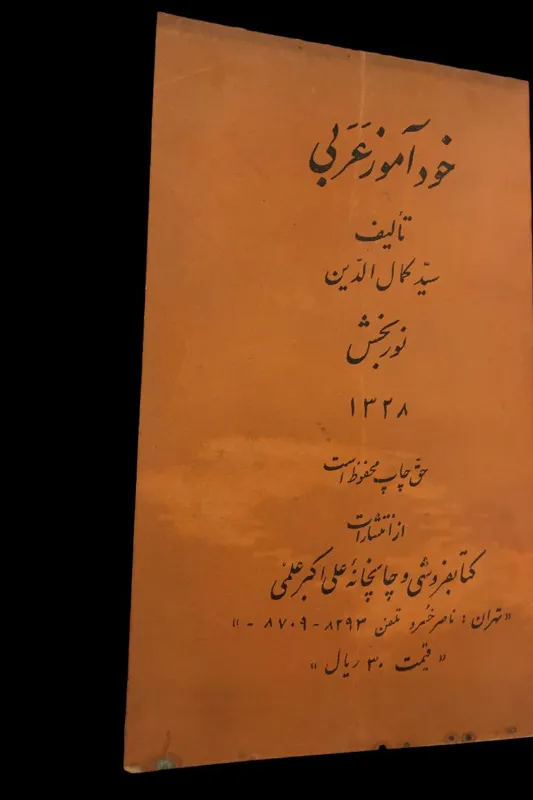 خودآموز عَرَبی
تألیف
سیّد کمال الدّین
نوربخش
۱۳۲۸
حق چاپ محفوظ است
از انتشارات
کتابفروشی و چاپخانهٔ علی اکبر علمی
«تهران : ناصر خسرو تلفن ۸۲۹۳ - ۸۷۰۹ - »
« قیمت ۳۰ ریال »